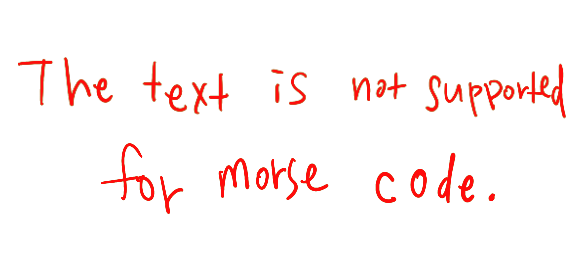 The text is not supported
for morse code.